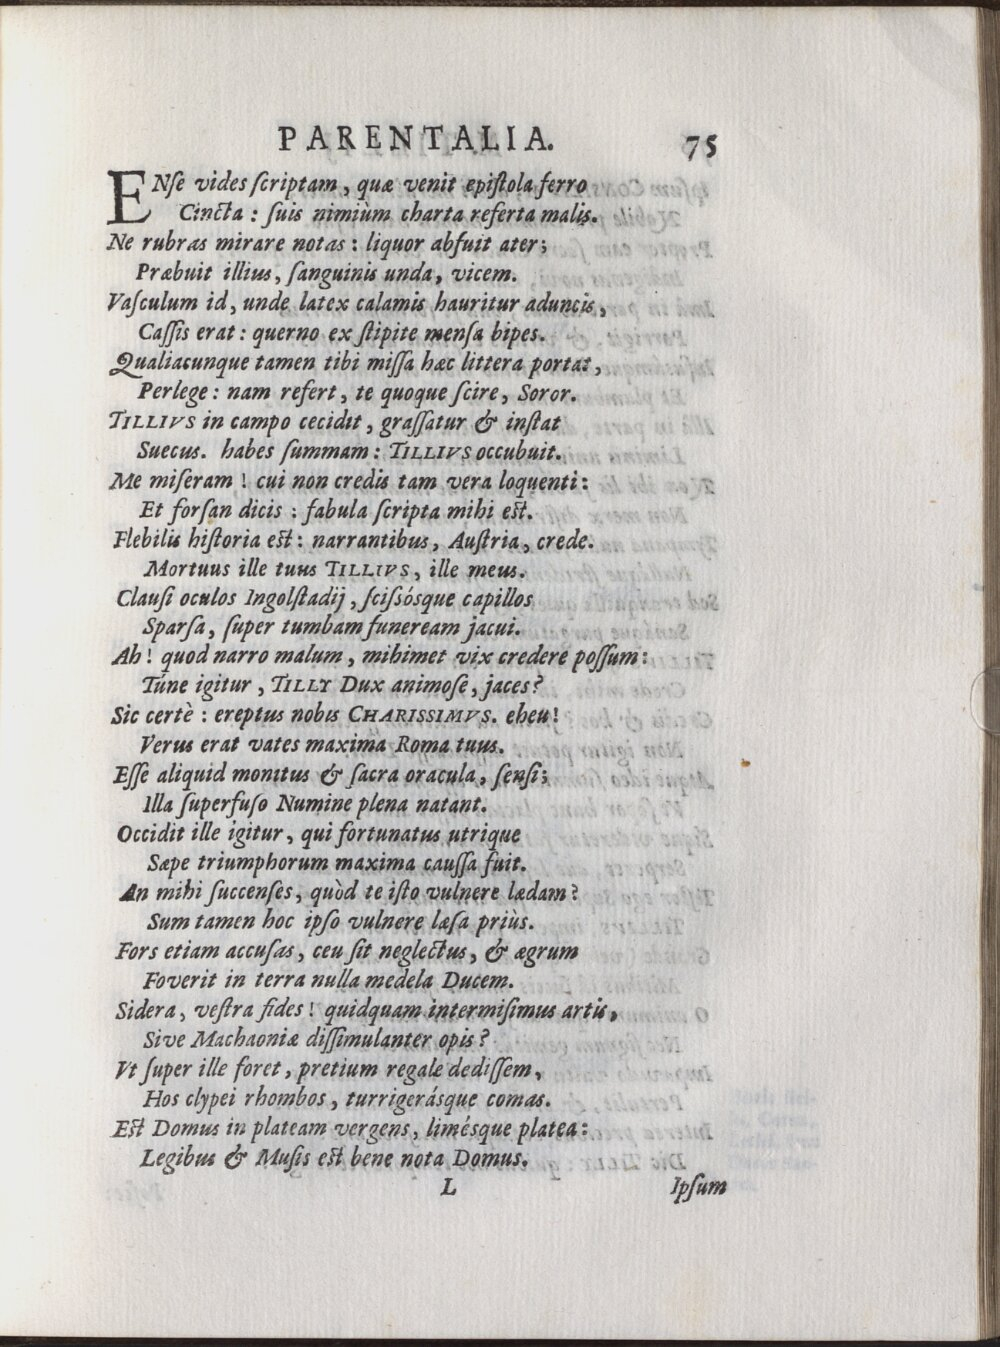 PARENTALIA. 75
ENſe vides ſcriptam, quæ venit epiſtola ferro
Cincta: ſuis nimiùm charta referta malis.
Ne rubras mirare notas: liquor abfuit ater;
Præbuit illius, ſanguinis unda, vicem.
Vaſculum id, unde latex calamis hauritur aduncis,
Caſſis erat: querno ex ſtipite menſa bipes.
Qualiacunque tamen tibi miſſa hæc littera portat,
Perlege: nam refert, te quoque ſcire, Soror.
TILLIVS in campo cecidit, graſſatur & inſtat
Suecus. habes ſummam: TILLIVS occubuit.
Me miſeram! cui non credis tam vera loquenti:
Et forſan dicis: fabula ſcripta mihi eſt.
Flebilis hiſtoria eſt: narrantibus, Auſtria, crede.
Mortuus ille tuus TILLIVS, ille meus.
Clauſi oculos Ingolſtadij, ſciſsósque capillos
Sparſa, ſuper tumbam funeream jacui.
Ah! quod narro malum, mihimet vix credere poſſum:
Túne igitur, TILLY Dux animoſe, jaces?
Sic certè: ereptus nobis CHARISSIMVS. eheu!
Verus erat vates maxima Roma tuus.
Eſſe aliquid monitus & ſacra oracula, ſenſi;
Illa ſuperfuſo Numine plena natant.
Occidit ille igitur, qui fortunatus utrique
Sæpe triumphorum maxima cauſſa fuit.
An mihi ſuccenſes, quòd te iſto vulnere lædam?
Sum tamen hoc ipſo vulnere læſa priùs.
Fors etiam accuſas, ceu ſit neglectus, & ægrum
Foverit in terra nulla medela Ducem.
Sidera, veſtra fides! quidquam intermiſimus artis,
Sive Machaoniæ diſſimulanter opis?
Vt ſuper ille foret, pretium regale dediſſem,
Hos clypei rhombos, turrigerásque comas.
Eſt Domus in plateam vergens, limésque platea:
Legibus & Muſis eſt bene nota Domus.
L Ipſum